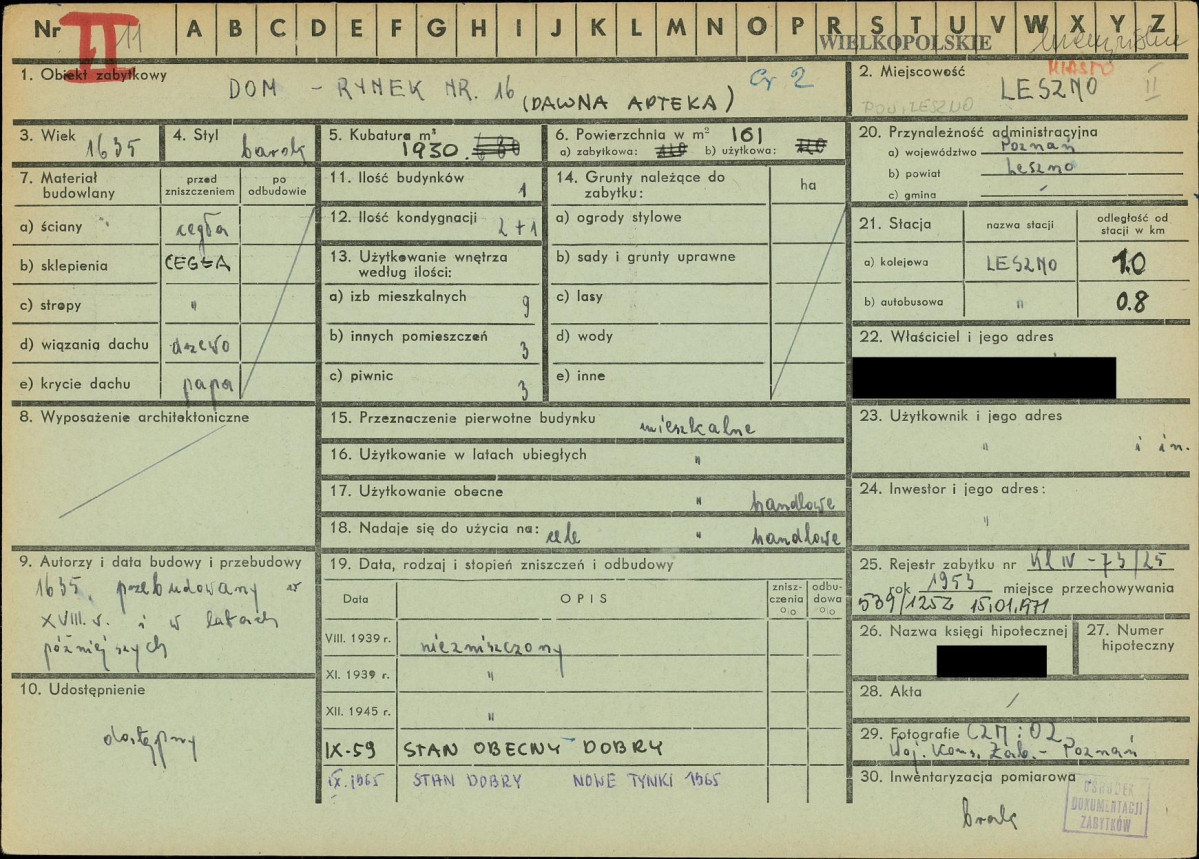 Nr II 11 A B C D E F G H I J K L M N O P R S T U V W X Y Z
WIELKOPOLSKIE
1. Obiekt zabytkowy
DOM - RYNEK NR. 16 (DAWNA APTEKA)
2. Miejscowość
MIASTO
LESZNO II
POW. LESZNO
3. Wiek 1635
4. Styl barok
5. Kubatura m³ 1930.
6. Powierzchnia w m² 161
a) zabytkowa: b) użytkowa:
20. Przynależność administracyjna
a) województwo Poznań
b) powiat Leszno
c) gmina
7. Materiał budowlany
przed zniszczeniem
po odbudowie
a) ściany cegła
b) sklepienia CEGŁA
c) stropy "
d) wiązania dachu drzewo
e) krycie dachu papa
11. Ilość budynków 1
12. Ilość kondygnacji 2+1
13. Użytkowanie wnętrza według ilości:
a) izb mieszkalnych 9
b) innych pomieszczeń 3
c) piwnic 3
14. Grunty należące do zabytku:
ha
a) ogrody stylowe
b) sady i grunty uprawne
c) lasy
d) wody
e) inne
21. Stacja
nazwa stacji
odległość od stacji w km
a) kolejowa LESZNO 1.0
b) autobusowa " 0.8
22. Właściciel i jego adres
8. Wyposażenie architektoniczne
15. Przeznaczenie pierwotne budynku mieszkalne
16. Użytkowanie w latach ubiegłych "
17. Użytkowanie obecne " handlowe
18. Nadaje się do użycia na: cele " handlowe
23. Użytkownik i jego adres
" i in.
24. Inwestor i jego adres:
"
9. Autorzy i data budowy i przebudowy
1635, przebudowany w
XVIII.w. i w latach
późniejszych
10. Udostępnienie
dostępny
19. Data, rodzaj i stopień zniszczeń i odbudowy
Data
OPIS
znisz-
czenia
%
odbu-
dowa
%
VIII. 1939 r. niezniszczony
XI. 1939 r. "
XII. 1945 r. "
IX-59 STAN OBECNY DOBRY
IX.1965 STAN DOBRY NOWE TYNKI 1965
25. Rejestr zabytku nr Kl IV - 73/25
rok 1953 miejsce przechowywania
539/1252 15.01.1971
26. Nazwa księgi hipotecznej
27. Numer hipoteczny
28. Akta
29. Fotografie
Woj. Kons. Zab. - Poznań
30. Inwentaryzacja pomiarowa
brak
OŚRODEK
DOKUMENTACJI
ZABYTKÓW